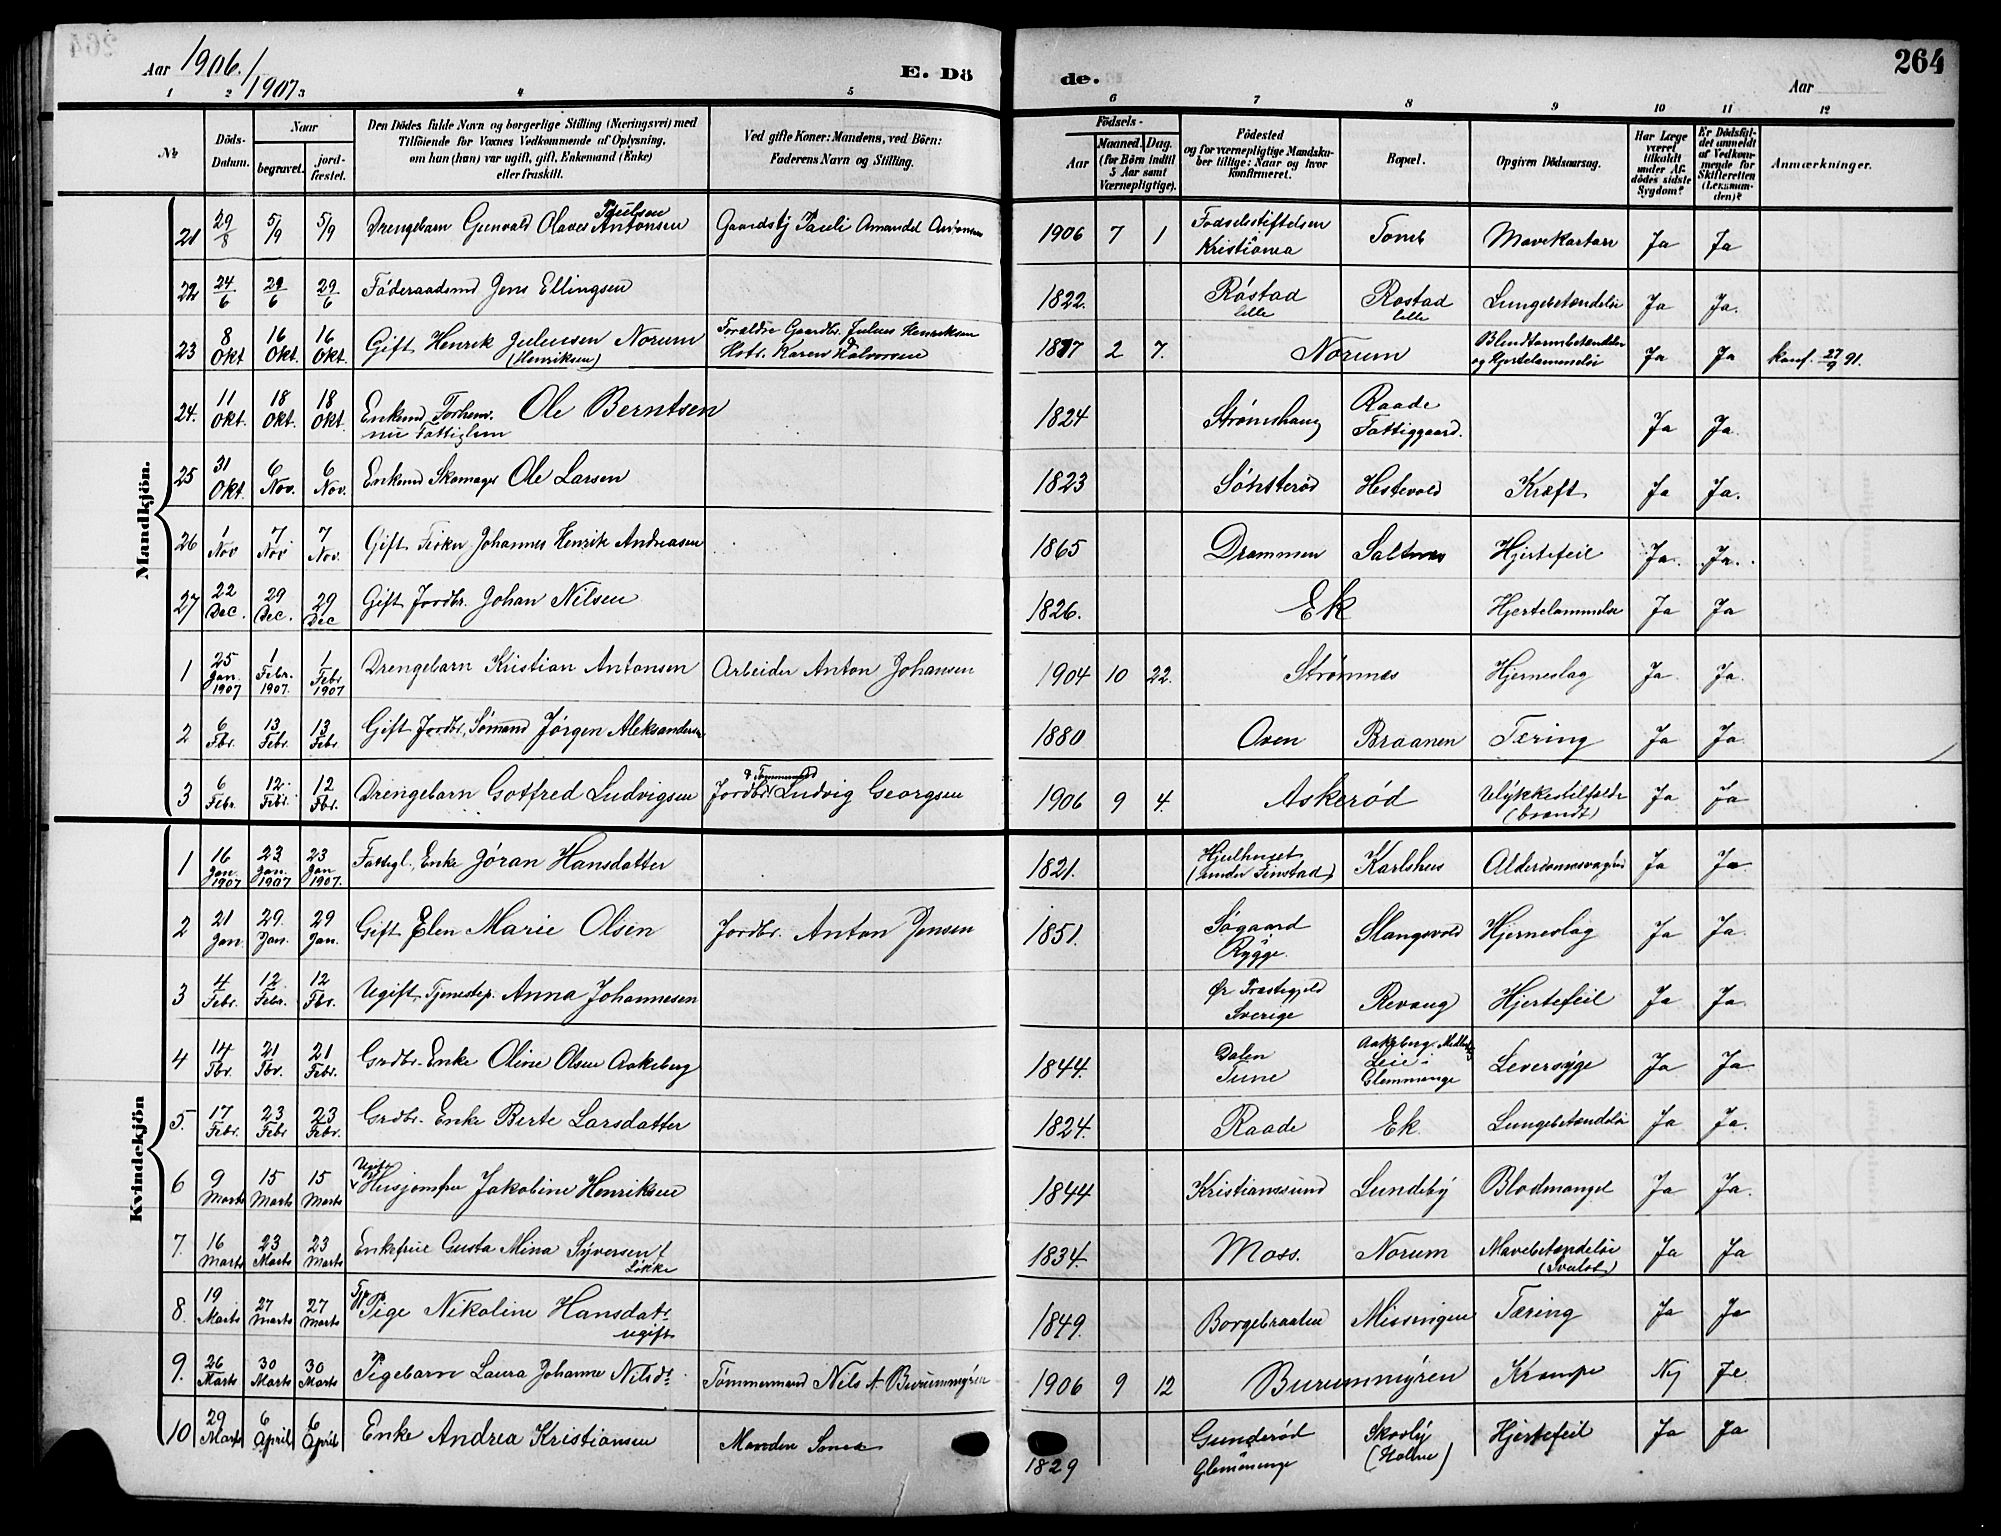 264
Aar 1906./1907
E. Dö de.
Aar
1 2 3 4 5 6 7 8 9 10 11 12
№
Döds-Datum.
Naar
begravet.
jordfæstet.
Den Dödes fulde Navn og borgerlige Stilling (Næringsvei) med
Tilföiende for Voxnes Vedkommende af Oplysning,
om hun (han) var ugift, gift, Enkemand (Enke)
eller fraskilt.
Ved gifte Koner: Mandens, ved Börn:
Faderens Navn og Stilling.
Födsels-
Aar
Maaned. Dag.
(for Börn indtil
5 Aar samt
Værnepligtige).
Födested
og for værnepligtige Mandskaber tillige: Naar og hvor
konfirmeret.
Bopæl.
Opgiven Dödsaarsag.
Har Læge været tilkaldt under Afdödes sidste Sygdom?
Er Dödsfaldet anmeldt af Vedkommende for Skifteretten (Lensmanden)?
Anmærkninger.
Mandkjön.
21 29/8 5/9 5/9 Drengebarn Gunvald Olaves Paulsen Antonsen Gaardsbj Pauli Amandel Antonsen 1906 7 1 Fødselsstiftelsen Kristiania Tomb Mavekatarr Ja Ja
22 24/6 29/6 29/6 Föderaadsmd Jens Ellingsen 1822. Röstad lille Rostad lille Lungebetændelse Ja Ja.
23 8 Okt 16 Okt. 16 Okt. Gift Henrik Juliusen Norum (Henriksen) Forældre Gaardbr. Julius Henriksen Hstr. Karen Halvorsen 1877 2 7. Norum Blindtarmbetændelse og Hjertelammelse Ja Ja konf. 27/9 91.
24. 11 Okt. 18 Okt. 18 Okt. Enkemd, Forhenv. nu Fattiglem Ole Berntsen 1824 Strømshaug Raade Fattiggaard. Ja Ja.
25 31 Okt. 6 Nov. 6 Nov. Enkemd Skomager Ole Larsen 1823 Sönsterød Hestevold Kræft Ja Ja.
26 1 Nov 7 Nov. 7 Nov. Gift Fisker Johannes Henrik Andreasen 1865 Drammen Saltnes Hjertefeil Ja. Ja.
27 22 Dec. 29 Dec. 29 Dec Gift Jordbr. Johan Nilsen 1826. Ek Hjertelammelse Ja Ja
1 25 Jan. 1907 1 Febr. 1907. 1 Febr 1907 Drengebarn Kristian Antonsen Arbeider Anton Johansen 1904 10 22. Strømnes Hjerneslag Ja Ja.
2 6 Fbr. 13 Febr. 13 Febr. Gift Jordbr, Sömand Jørgen Aleksandersen 1880 Oven Braanen Tæring Ja Ja.
3 6 Febr. 12 Febr. 12 Fbr. Drengebarn Gotfred Ludvigsen Jordbr & Tømmermand Ludvig Georgsen 1906 9 4. Askerød Ulykkestilfælde (brændt) Ja Ja
Kvindekjön
1 16 Jan 1907 23 Jan. 1907 23 Jan 1907. Fattigl, Enke Jøran Hansdatter 1821. Hjulhuset (under Finstad) Karlshus Alderdomssvaghed Ja Ja.
2 21 Jan. 29. Jan. 29 Jan. Gift Elen Marie Olsen Jordbr. Anton Jensen 1851. Søgaard i Rygge. Slangsvold Hjerneslag Ja Ja.
3 4 Febr. 12. Febr. 12 Fbr. Ugift, Tjenestep. Anna Johannesen Ør Præstegjeld Sverige Revaug Hjertefeil Ja Ja.
4 14 Fbr. 21 Fbr. 21 Febr. Grdbr. Enke Oline Olsen Aakeberg 1844. Dalen Tune Leie i Glemminge Leversyge Ja Ja.
5. 17 Febr. 23 Febr 23 Febr. Grdbr. Enke Berte Larsdatter 1824. Raade Ek. Lungebetændelse Ja Ja.
6 9 Marts 15 Marts 15 Marts Ugift Husjomfru Jakobine Henriksen 1844 Kristianssund Lundeby Blodmangel Ja Ja.
7. 16 Marts 23 Marts 23 Marts Enkefrue Gusta Mina Syversen f. Løkke 1834. Moss. Norum Mavebetændelse Ja Ja
8. 19 Marts 27 Marts 27 Marts Pige Nikoline Hansdatr ugift 1849. Borgebraaten Missingen Tæring Ja Ja
9. 26 Marts 30 Marts 30 Marts Pigebarn Laura Johanne Nilsdt. Tömmermand Nils A. Burummyren 1906 9 12 Burummyren Krampe Nej Ja
10 29 Marts 6 April 6 April Enke Andrea Kristiansen Manden 1829 Gunderød Glemminge Skovly Hjertefeil Ja Ja